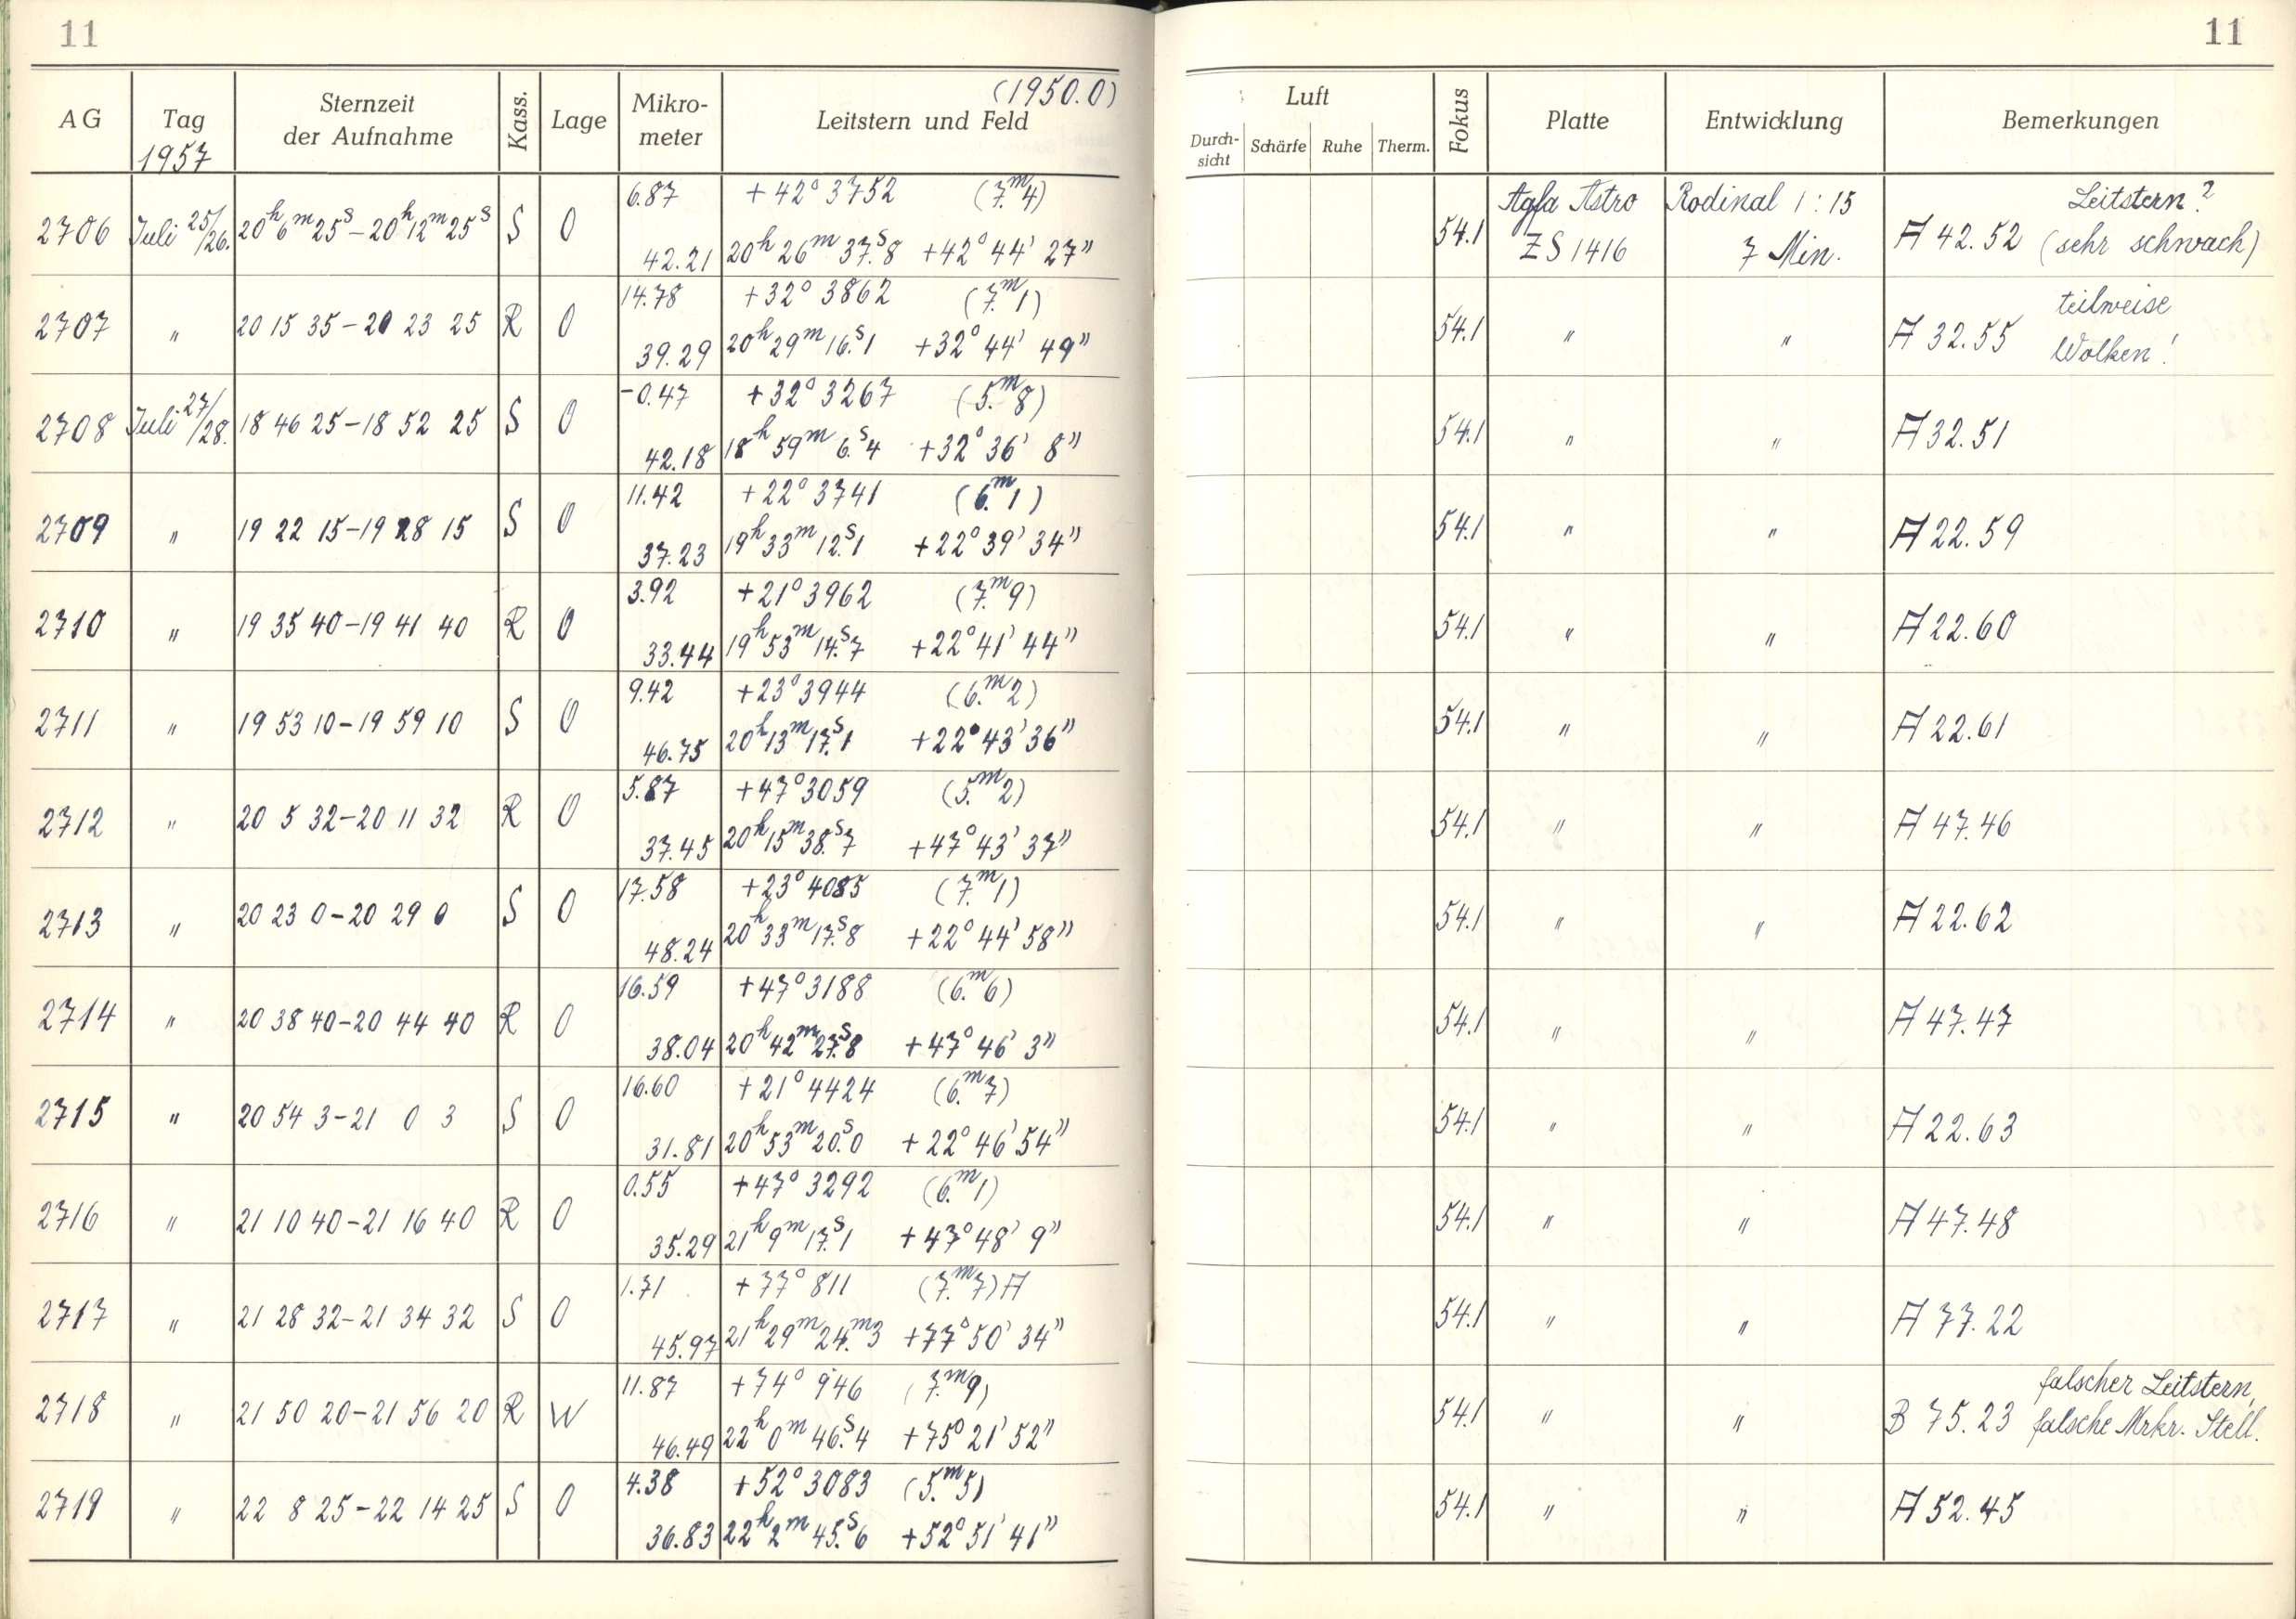 11
11
(1950.0)
AG Tag 1957 Sternzeit der Aufnahme Kass. Lage Mikro-meter Leitstern und Feld
Luft Durch-sicht Schärfe Ruhe Therm. Fokus Platte Entwicklung Bemerkungen
6.87 +42° 3752 (7.m4) Agfa Astro Rodinal 1:15 Leitstern?
2706 Juli 25/26. 20h 6m 25s – 20h 12m 25s S O 54.1 A 42.52 (sehr schwach)
42.21 20h 26m 37.s8 +42° 44' 27" ZS 1416 7 Min.
14.78 +32° 3862 (7.m1) teilweise
2707 " 20 15 35 – 20 23 25 R O 54.1 " " A 32.55 Wolken!
39.29 20h 29m 16.s1 +32° 44' 49"
-0.47 +32° 3267 (5.m8)
2708 Juli 27/28. 18 46 25 – 18 52 25 S O 54.1 " " A 32.51
42.18 18h 59m 6.s4 +32° 36' 8"
11.42 +22° 3741 (6.m1)
2709 " 19 22 15 – 19 28 15 S O 54.1 " " A 22.59
37.23 19h 33m 12.s1 +22° 39' 34"
3.92 +21° 3962 (7.m9)
2710 " 19 35 40 – 19 41 40 R O 54.1 " " A 22.60
33.44 19h 53m 14.s7 +22° 41' 44"
9.42 +23° 3944 (6.m2)
2711 " 19 53 10 – 19 59 10 S O 54.1 " " A 22.61
46.75 20h 13m 17.s1 +22° 43' 36"
5.87 +47° 3059 (5.m2)
2712 " 20 5 32 – 20 11 32 R O 54.1 " " A 47.46
37.45 20h 15m 38.s7 +47° 43' 37"
17.58 +23° 4085 (7.m1)
2713 " 20 23 0 – 20 29 0 S O 54.1 " " A 22.62
48.24 20h 33m 17.s8 +22° 44' 58"
16.59 +47° 3188 (6.m6)
2714 " 20 38 40 – 20 44 40 R O 54.1 " " A 47.47
38.04 20h 42m 27.s8 +47° 46' 3"
16.60 +21° 4424 (6.m7)
2715 " 20 54 3 – 21 0 3 S O 54.1 " " A 22.63
31.81 20h 53m 20.s0 +22° 46' 54"
0.55 +47° 3292 (6.m1)
2716 " 21 10 40 – 21 16 40 R O 54.1 " " A 47.48
35.29 21h 9m 17.s1 +47° 48' 9"
1.71 +77° 811 (7.m7) A
2717 " 21 28 32 – 21 34 32 S O 54.1 " " A 77.22
45.97 21h 29m 24.m3 +77° 50' 34"
11.87 +74° 946 (7.m9) falscher Leitstern,
2718 " 21 50 20 – 21 56 20 R W 54.1 " " B 75.23 falsche Mrkr. Stell.
46.49 22h 0m 46.s4 +75° 21' 52"
4.38 +52° 3083 (5.m5)
2719 " 22 8 25 – 22 14 25 S O 54.1 " " A 52.45
36.83 22h 2m 45.s6 +52° 51' 41"